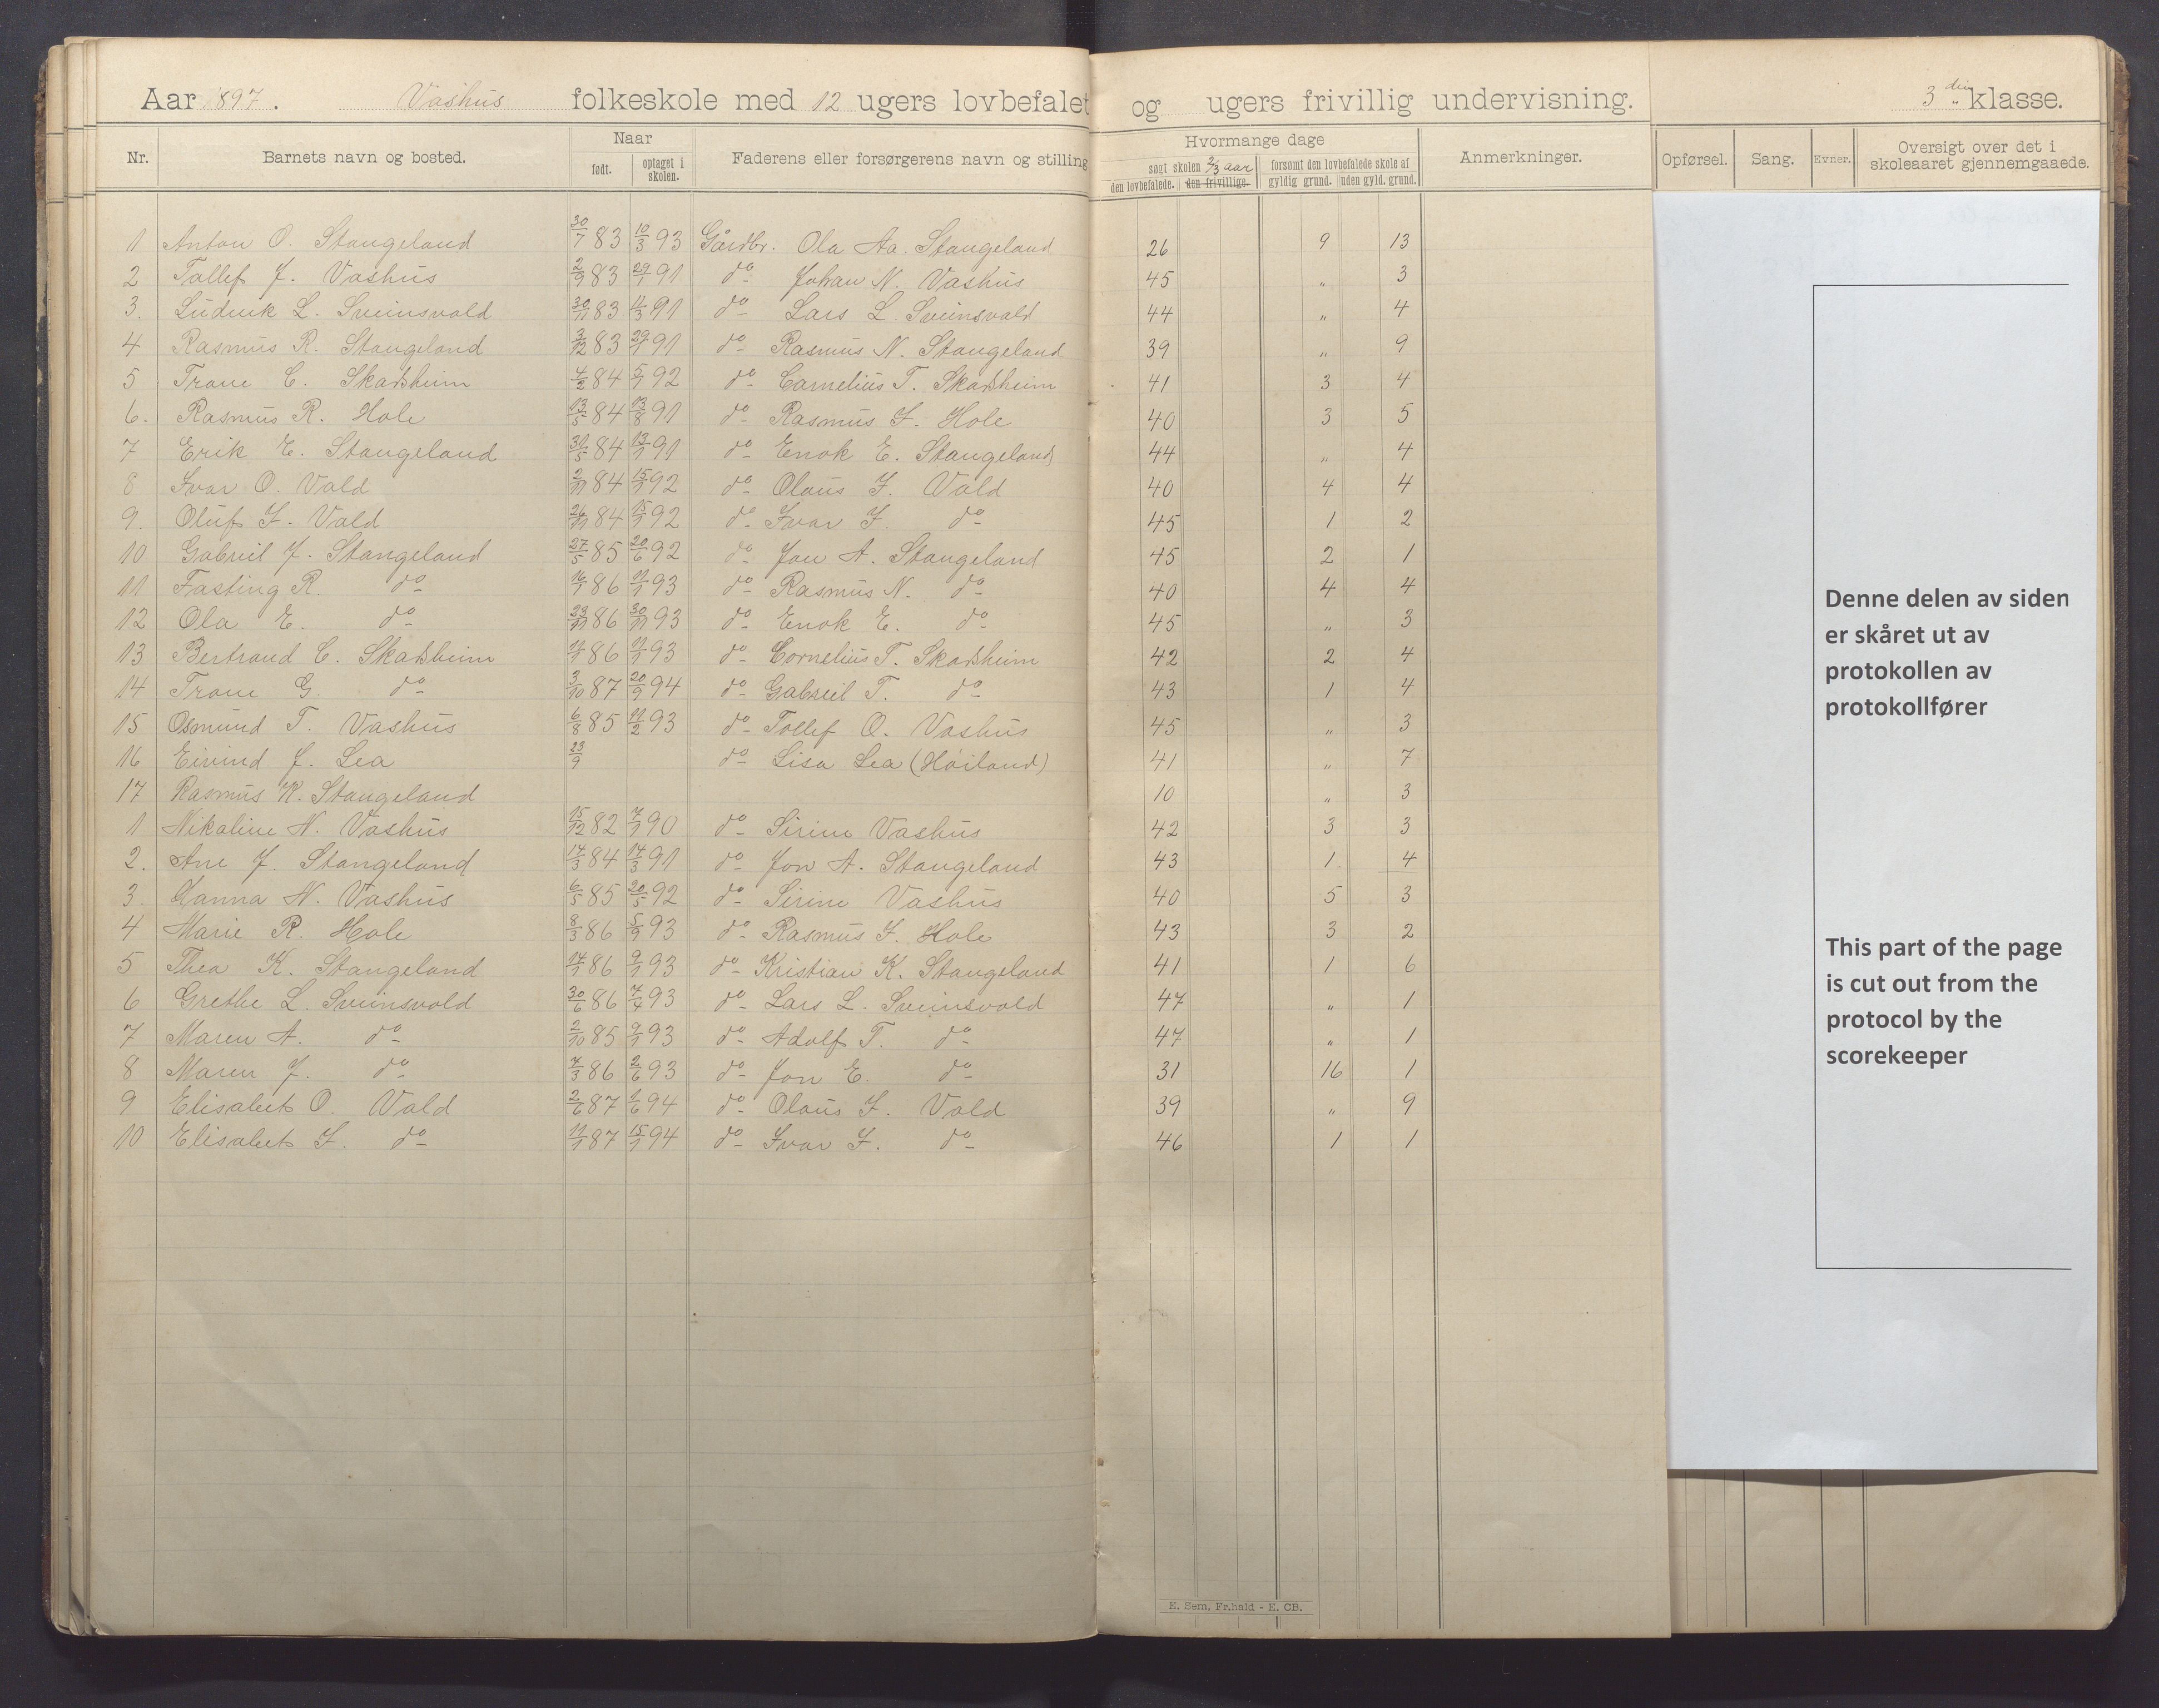 Aar 1897. Vashus folkeskole med 12 ugers lovbefalet og ugers frivillig undervisning. 3die klasse.
Nr. Barnets navn og bosted. Naar født. optaget i skolen. Faderens eller forsørgerens navn og stilling Hvormange dage søgt skolen 2/3 aar den lovbefalede. den frivillige. forsømt den lovbefalede skole af gyldig grund. uden gyld. grund. Anmerkninger. Opførsel. Sang. Evner. Oversigt over det i skoleaaret gjennemgaaede.
1 Anton O. Stangeland 30/7 83 10/3 93 Gårdbr. Ola Aa. Stangeland 26 9 13
2 Tollef J. Vashus 2/9 83 29/1 91 do Johan N. Vashus 45 " 3
3. Ludvik L. Sveinsvold 30/11 83 11/3 91 do Lars L. Sveinsvold 44 " 4
4 Rasmus R. Stangeland 3/12 83 29/1 91 do Rasmus N. Stangeland 39 " 9
5 Trone C. Skadsheim 4/2 84 5/1 92 do Cornelius T. Skadsheim 41 3 4
6. Rasmus R. Hole 13/5 84 13/8 91 do Rasmus I. Hole 40 3 5
7 Erik E. Stangeland 31/5 84 13/1 91 do Enok E. Stangeland 44 " 4
8 Ivar O. Vold 2/11 84 15/1 92 do Olaus I. Vold 40 4 4
9. Oluf I. Vold 26/11 84 15/1 92 do Ivar I. do 45 1 2
10 Gabriel J. Stangeland 27/5 85 20/6 92 do Jon A. Stangeland 45 2 1
11 Fasting R. do 16/1 86 11/1 93 do Rasmus N. do 40 4 4
12 Ola E. do 23/11 86 30/11 93 do Enok E. do 45 " 3
13 Bertrand C. Skadsheim 11/1 86 11/1 93 do Cornelius T. Skadsheim 42 2 4
14 Trone G. do 3/10 87 20/9 94 do Gabriel T. do 43 1 4
15 Osmund T. Vashus 6/8 85 11/2 93 do Tollef O. Vashus 45 " 3
16 Eivind J. Lea 23/9 do Lisa Lea (Høiland) 41 " 7
17 Rasmus K. Stangeland 10 " 3
1 Nikoline N. Vashus 15/12 82 7/1 90 do Sirine Vashus 42 3 3
2. Ane J. Stangeland 14/3 84 14/3 91 do Jon A. Stangeland 43 1 4
3. Hanna N. Vashus 6/5 85 20/5 92 do Sirine Vashus 40 5 3
4 Marie R. Hole 8/3 86 5/9 93 do Rasmus I. Hole 43 3 2
5 Thea K. Stangeland 14/1 86 9/1 93 do Kristian K. Stangeland 41 1 6
6 Grethe L. Sveinsvold 30/6 86 7/4 93 do Lars L. Sveinsvold 47 " 1
7 Maren A. do 2/10 85 9/1 93 do Adolf T. do 47 " 1
8 Maren J. do 7/3 86 2/6 93 do Jon E. do 31 16 1
9 Elisabet O. Vold 2/6 87 1/6 94 do Olaus I. Vold 39 " 9
10 Elisabet I. do 11/1 87 15/1 94 do Ivar I. do 46 1 1
Denne delen av siden
er skåret ut av
protokollen av
protokollfører
This part of the page
is cut out from the
protocol by the
scorekeeper
E. Sem, Fr.hald - E. CB.